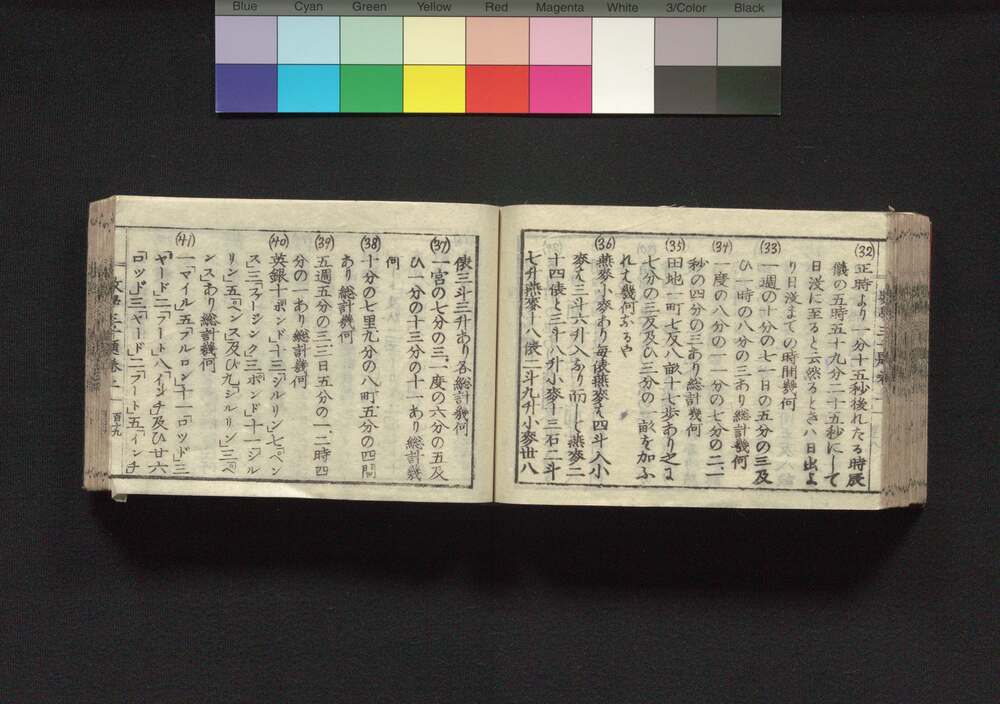 Blue Cyan Green Yellow Red Magenta White 3/Color Black
(32) 正時より一分十五秒後れたる時辰
儀の五時五十九分二十五秒にして
日没に至ると云然るときハ日出よ
り日没まての時間幾何
(33) 一週の十分の七一日の五分の三及
ひ一時の八分の三あり総計幾何
(34) 一度の八分の一一分の七分の二二
秒の四分の三あり総計幾何
(35) 田地一町七反八畝十七歩あり之に
七分の三反及ひ三分の一畝を加ふ
れて幾何なるや
(36) 燕麥小麥あり毎俵燕麥ハ四斗入小
麥ハ三斗六升入なり而して燕麥二
十四俵と三斗八升小麥十三石二斗
七升燕麥十八俵二斗九升小麥丗八
俵三斗三升あり各総計幾何
(37) 一宮の七分の三、一度の六分の五及
ひ一分の十三分の十一あり総計幾
何
(38) 十分の七里九分の八町、五分の四間
あり総計幾何
(39) 五週五分の三、三日五分の一、二時四
分の一あり総計幾何
(40) 英銀十「ポンド」十三「シルリン」七「ペン
ス」三「ファーシンク」三「ポンド」十一「シル
リン」五「ペンス」及び九「シルリン」三「ペ
ンス」あり総計幾何
(41) 一「マイル」五「フルロン」十一「ロッド」三
「ヤード」二「フート」八「インチ」及ひ廿六
「ロッド」三「ヤード」二「フート」五「インチ
百十九